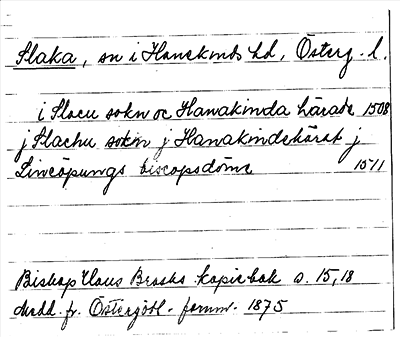 Slaka, sn i Hanekinds hd, Österg. l.
i Slacu sokn oc Hanakinda härade 1508
j Slachu sokn j Hanakindehärat j
Lincöpungs biscopsdöme 1511
Biskop Claus Brasks kopiebok s. 15, 18
Medd. fr. Östergötl. fornm. 1875